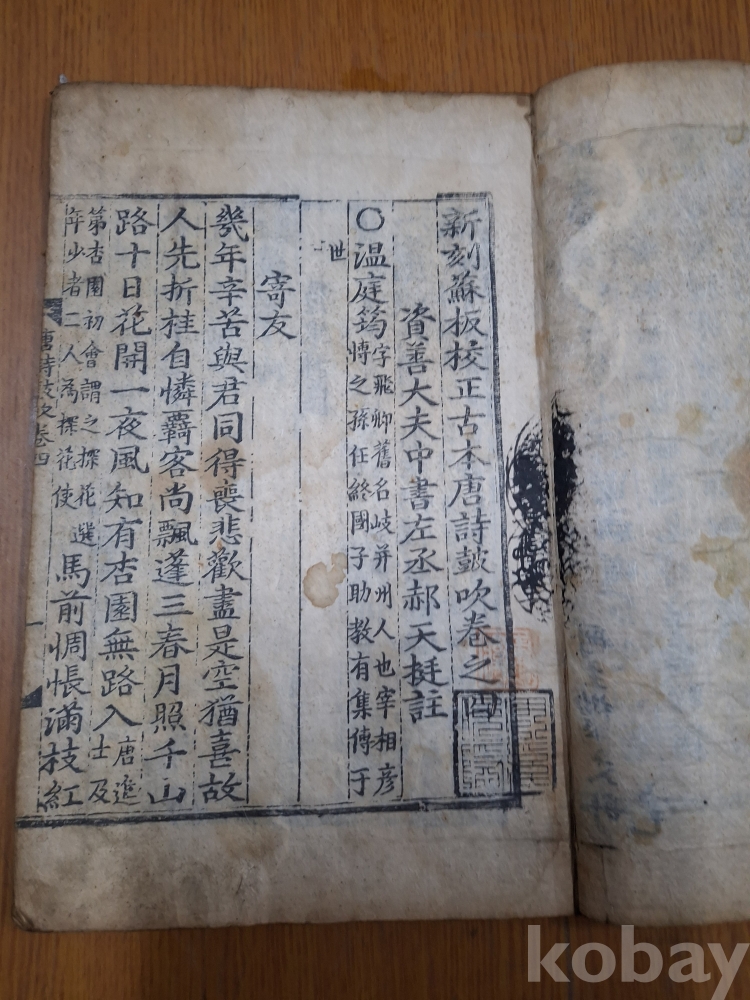 新刻蘇板校正古本唐詩鼓吹卷之四
資善大夫中書左丞郝天挺註
〇温庭筠字飛卿舊名岐并州人也宰相彦
愽之孫任終國子助教有集傳于
世
寄友
幾年辛苦與君同得喪悲歡盡是空猶喜故
人先折桂自憐羇客尚飄蓬三春月照千山
路十日花開一夜風知有杏園無路入唐進
士及
第杏園初會謂之探花選
年少者二人為探花使
馬前惆悵滿枝紅
唐詩鼓吹卷四
一
kobay